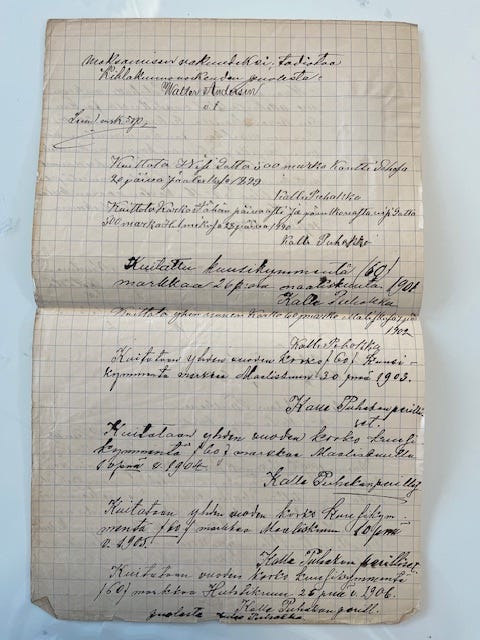 maksamisen vakuudeksi, todistaa
Kihlakunnanoikeuden puolesta:
Walter Andersin
v. t.
Lun. mrk 5 p.
Kuitata 500 markka
20 päivä 1899
Kalle Puhakko
Kuitata Korko Tähän päiväästi ja
500 markka 28 päivä 1900
Kalle Puhakko
Kuitattu kuusikymmentä (60)
markkaa 26 p:nä maaliskuuta 1901
Kalle Puhakka
yhen vuuen Korko 60 markko
1902
Kalle Puhakka
Kuitataan yhden vuoden korko (60) kuusi-
kymmentä markkaa Maaliskuun 30 pnä 1903.
Kalle Puhakan perilli-
set.
Kuitataan yhden vuoden korko kuusi-
kymmentä (60) markkaa Maaliskuulla
pnä v. 1904
Kalle Puhakan perilliset
Kuitataan yhden vuoden korko kuusikym-
mentä (60) markkaa Maaliskuun 10 pnä
v. 1905.
Kalle Puhakan perilliset.
Kuitataan vuoden korko kuusikymmentä
(60) markkaa Huhtikuun 25 pnä v. 1906.
Kalle Puhakan perill.
puolesta Puhakka